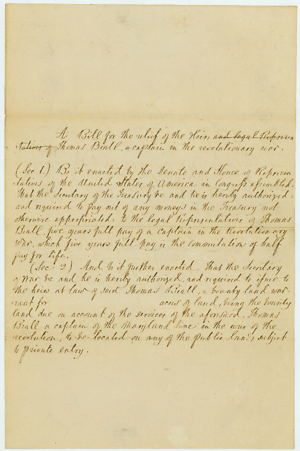 A Bill for the relief of the Heirs and legal Represen
tatives of Thomas Beall, a captain in the revolutionary war.
(Sec 1) Be it enacted by the Senate and House of Represen
tatives of the United States of America in Congress assembled.
That the Secretary of the Treasury be and he is hereby authorized
and required to pay out of any moneys in the Treasury not
otherwise appropriated to the legal Representatives of Thomas
Beall five years full pay of a Captain in the Revolutionary
War, which five years full pay is the commutation of half
pay for life.
(Sec 2) And be it further enacted. That the Secretary
of War be and he is hereby authorized and required to issue to
the heirs at law of said Thomas Beall, a bounty land war-
rant for acres of land, being the bounty
land due on account of the services of the aforesaid Thomas
Beall a captain of the Maryland line in the war of the
revolution, to be located on any of the public lands subject
to private entry.